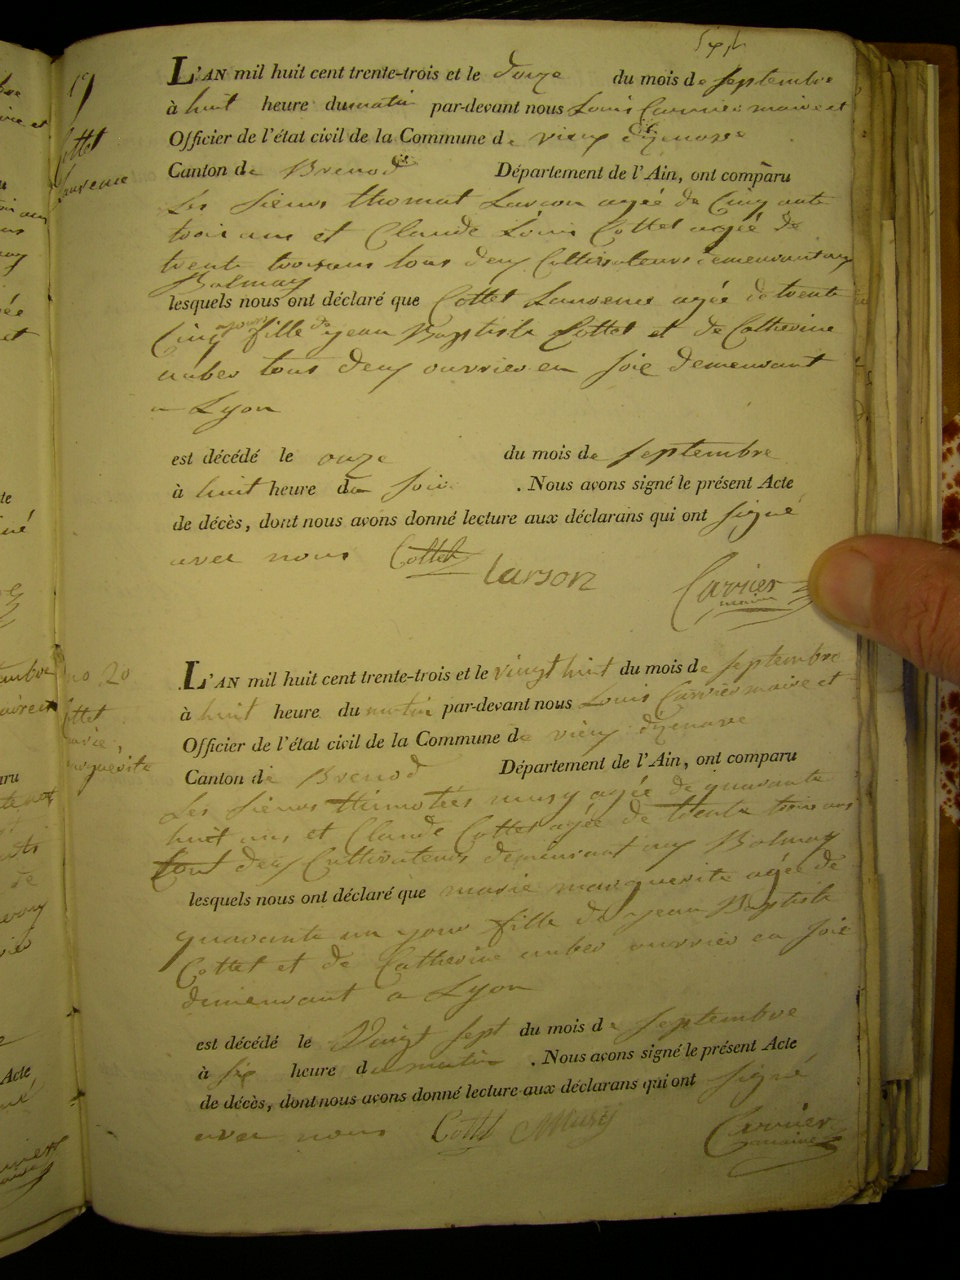 Sept
L'AN mil huit cent trente-trois et le douze du mois de septembre
à huit heure du matin par-devant nous Louis Carrier maire et
Officier de l'état civil de la Commune de vieux dizenave
Canton de Brenod Département de l'Ain, ont comparu
Les sieurs thomat Larson agée de Cinquante
trois ans et Claude Louis Cottet agée de
trente trois ans tous deux Cultivateurs demeurant au
Balmay
lesquels nous ont déclaré que Cottet Laurence agée de trente
Cinq jours fille de jean Baptiste Cottet et de Catherine
imber tous deux ouvrier en soie demeurant
a Lyon
est décédé le onze du mois de septembre
à huit heure du soir . Nous avons signé le présent Acte
de décès, dont nous avons donné lecture aux déclarans qui ont signé
avec nous Cottet Larson Carrier
maire
19
Cottet
Laurence
L'AN mil huit cent trente-trois et le vingt huit du mois de septembre
à huit heure du matin par-devant nous Louis Carrier maire et
Officier de l'état civil de la Commune de vieux dizenave
Canton de Brenod Département de l'Ain, ont comparu
Les sieurs thimotées musy agée de quarante
huit ans et Claude Cottet agée de trente trois ans
tout deux Cultivateurs demeurant au Balmay
lesquels nous ont déclaré que marie marguerite agée de
quarante un jour fille de jean Baptiste
Cottet et de Catherine imber ouvrier en soie
demeurant a Lyon
est décédé le Vingt sept du mois de septembre
à six heure du matin . Nous avons signé le présent Acte
de décès, dont nous avons donné lecture aux déclarans qui ont signé
avec nous Cottet Musy Carrier
maire
no 20
Cottet
marie
marguerite